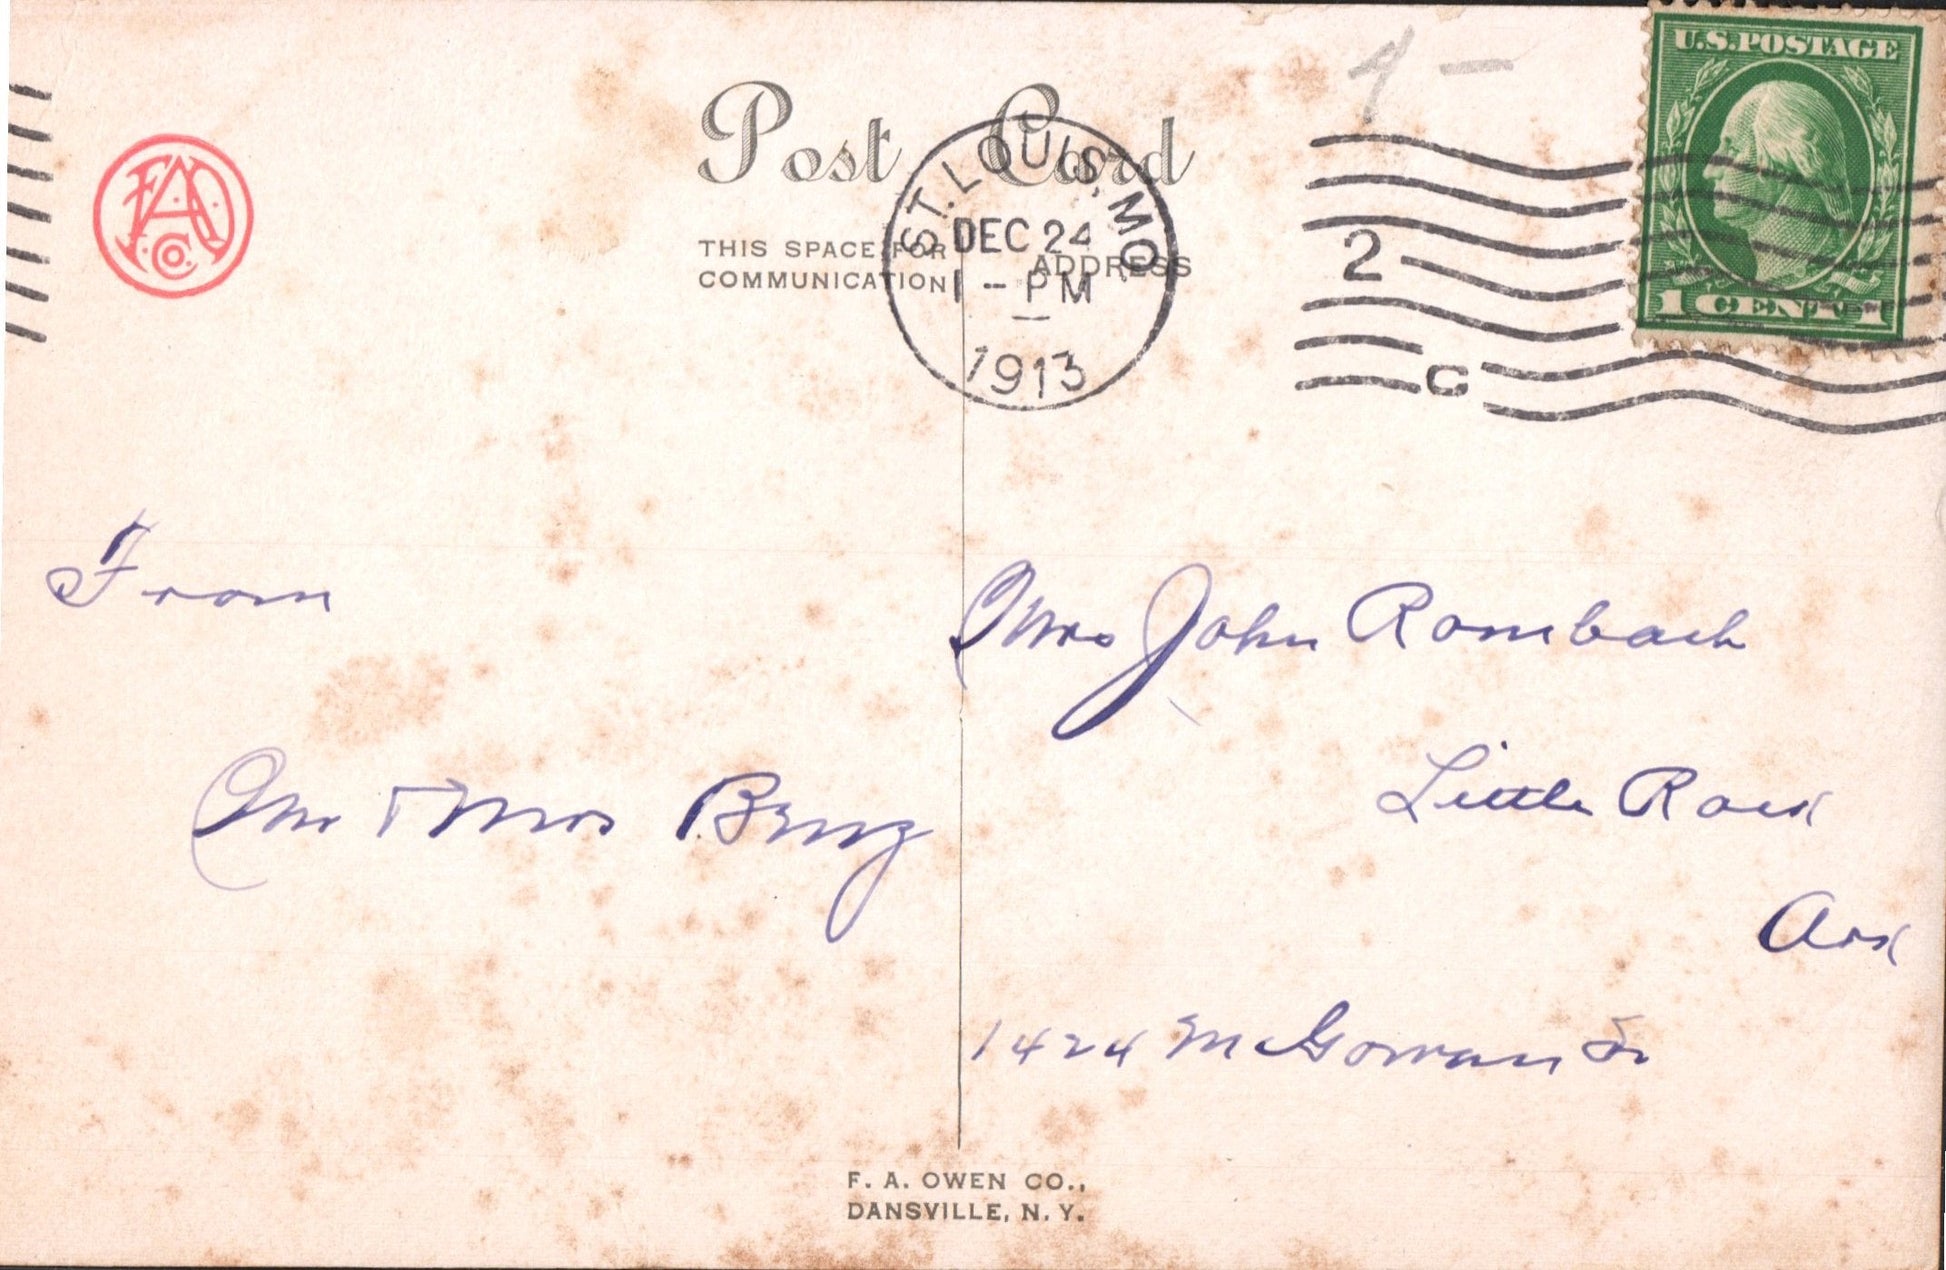 Post Card
THIS SPACE FOR
COMMUNICATION
ADDRESS
ST. LOUIS, MO.
DEC 24
1 - PM
1913
2
C
U.S. POSTAGE
1 CENT 1
1 -
F A O
CO.
From
Mr & Mrs Benz
Mrs John Rombach
Little Rock
Ark
1424 McGowan St
F. A. OWEN CO.,
DANSVILLE, N. Y.